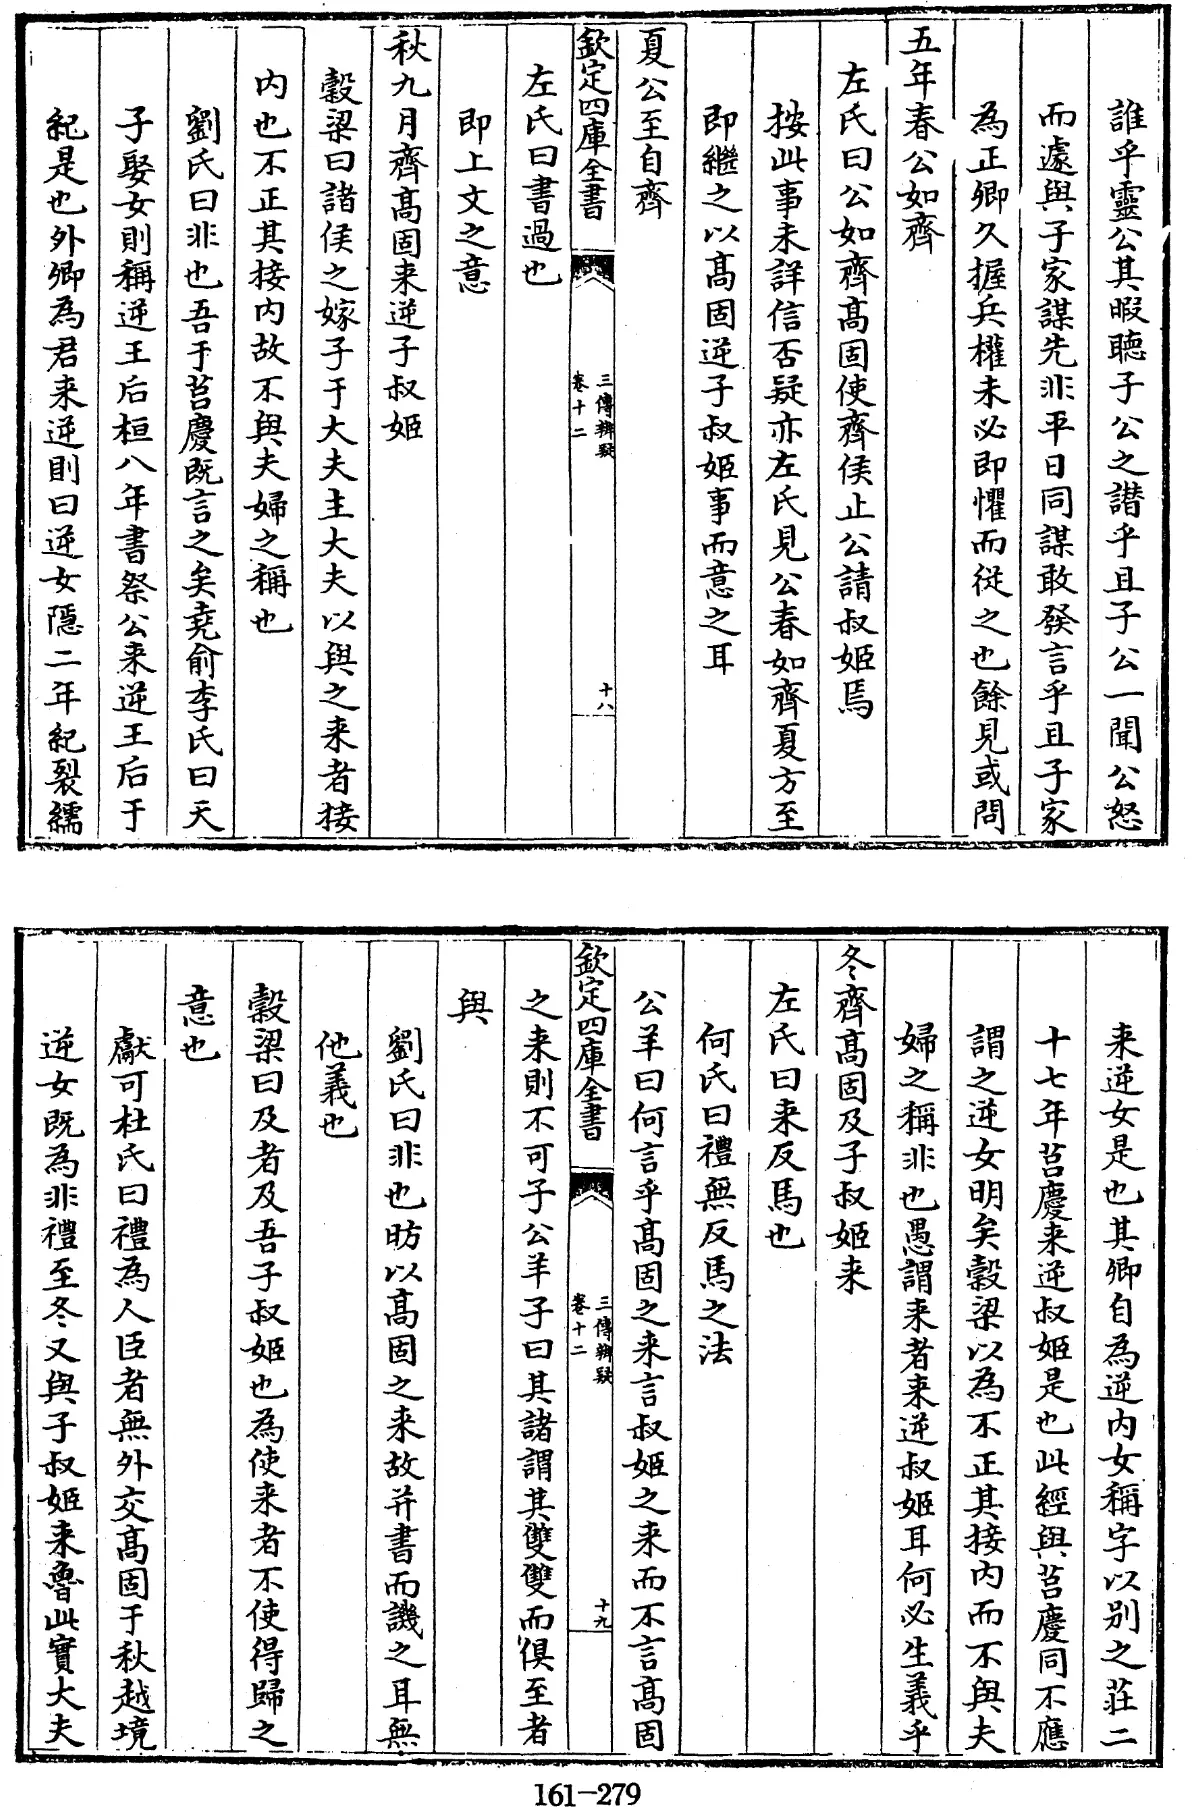 誰乎靈公其暇聽子公之譖乎且子公一聞公怒
而遽與子家謀先非平日同謀敢發言乎且子家
為正卿久握兵權未必即懼而從之也餘見或問
五年春公如齊
左氏曰公如齊髙固使齊侯止公請叔姬焉
按此事未詳信否疑亦左氏見公春如齊夏方至
即繼之以髙固逆子叔姬事而意之耳
夏公至自齊
欽定四庫全書
三傳辨疑
卷十二
十八
左氏曰書過也
即上文之意
秋九月齊髙固来逆子叔姬
穀梁曰諸侯之嫁子于大夫主大夫以與之来者接
内也不正其接内故不與夫婦之稱也
劉氏曰非也吾于莒慶既言之矣堯俞李氏曰天
子娶女則稱逆王后桓八年書祭公来逆王后于
紀是也外卿為君来逆則曰逆女隠二年紀裂繻
来逆女是也其卿自為逆内女稱字以别之莊二
十七年莒慶来逆叔姬是也此經與莒慶同不應
謂之逆女明矣穀梁以為不正其接内而不與夫
婦之稱非也愚謂来者来逆叔姬耳何必生義乎
冬齊髙固及子叔姬来
左氏曰来反馬也
何氏曰禮無反馬之法
公羊曰何言乎髙固之来言叔姬之来而不言髙固
欽定四庫全書
三傳辨疑
卷十二
十九
之来則不可子公羊子曰其諸謂其雙雙而俱至者
與
劉氏曰非也昉以髙固之来故并書而譏之耳無
他義也
穀梁曰及者及吾子叔姬也為使来者不使得歸之
意也
獻可杜氏曰禮為人臣者無外交髙固于秋越境
逆女既為非禮至冬又與子叔姬来魯此實大夫
161-279